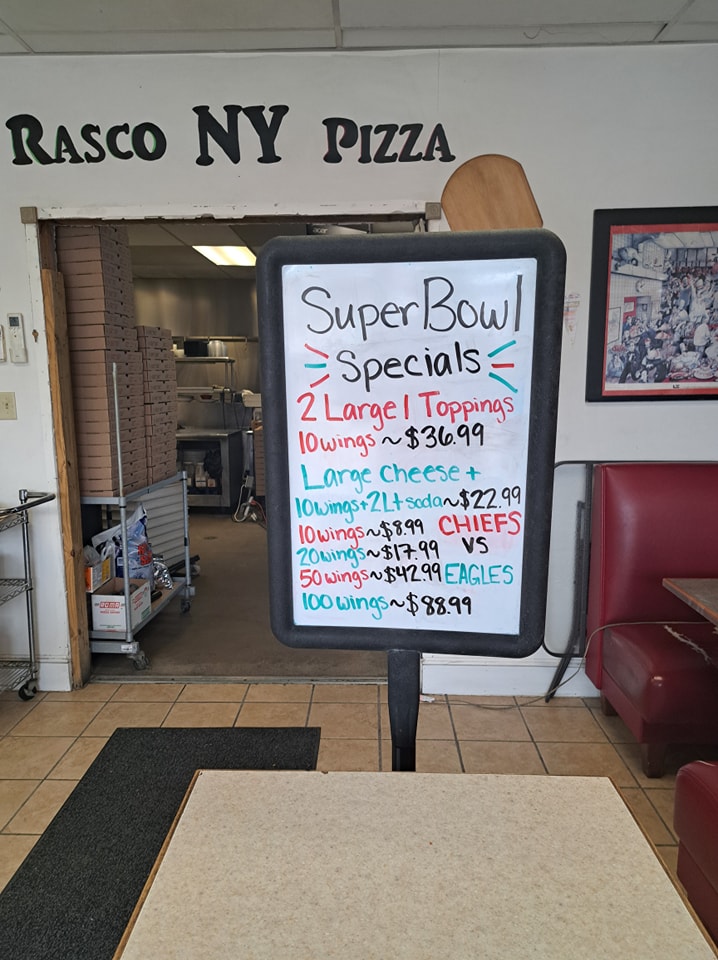 RASCO NY PIZZA
SuperBowl
Specials
2 Large 1 Toppings
10wings ~ $36.99
Large cheese +
10wings + 2Lt soda ~ $22.99
10wings ~ $8.99 CHIEFS
20wings ~ $17.99 VS
50wings ~ $42.99 EAGLES
100wings ~ $88.99
ROMA